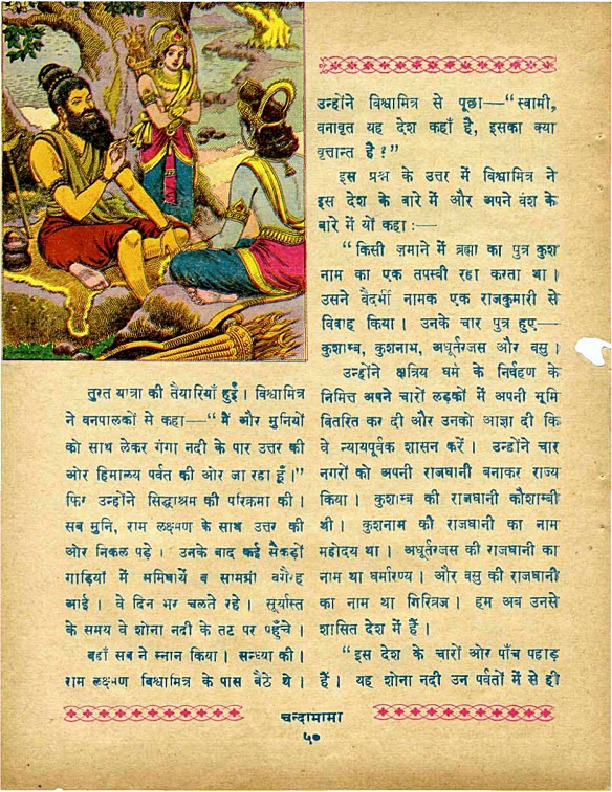 तुरत यात्रा की तैयारियाँ हुईं। विश्वामित्र
ने वनपालकों से कहा—"मैं और मुनियों
को साथ लेकर गंगा नदी के पार उत्तर की
ओर हिमालय पर्वत की ओर जा रहा हूँ।"
फिर उन्होंने सिद्धाश्रम की परिक्रमा की।
सब मुनि, राम लक्ष्मण के साथ उत्तर की
ओर निकल पड़े। उनके बाद कई सैकड़ों
गाड़ियों में समिधायें व सामग्री वगैरह
आईं। वे दिन भर चलते रहे। सूर्यास्त
के समय वे शोना नदी के तट पर पहुँचे।
वहाँ सब ने स्नान किया। सन्ध्या की।
राम लक्ष्मण विश्वामित्र के पास बैठे थे।
उन्होंने विश्वामित्र से पूछा—"स्वामी,
वनावृत यह देश कहाँ है, इसका क्या
वृत्तान्त है?"
इस प्रश्न के उत्तर में विश्वामित्र ने
इस देश के बारे में और अपने वंश के
बारे में यों कहा:—
"किसी ज़माने में ब्रह्मा का पुत्र कुश
नाम का एक तपस्वी रहा करता था।
उसने वैदर्भी नामक एक राजकुमारी से
विवाह किया। उनके चार पुत्र हुए—
कुशाम्ब, कुशनाभ, अधूर्तरजस और वसु।
उन्होंने क्षत्रिय धर्म के निर्वहण के
निमित्त अपने चारों लड़कों में अपनी भूमि
वितरित कर दी और उनको आज्ञा दी कि
वे न्यायपूर्वक शासन करें। उन्होंने चार
नगरों को अपनी राजधानी बनाकर राज्य
किया। कुशाम्ब की राजधानी कौशाम्बी
थी। कुशनाभ की राजधानी का नाम
महोदय था। अधूर्तरजस की राजधानी का
नाम था धर्मारण्य। और वसु की राजधानी
का नाम था गिरिव्रज। हम अब उनसे
शासित देश में हैं।
"इस देश के चारों ओर पाँच पहाड़
हैं। यह शोना नदी उन पर्वतों में से ही
चन्दामामा
५०